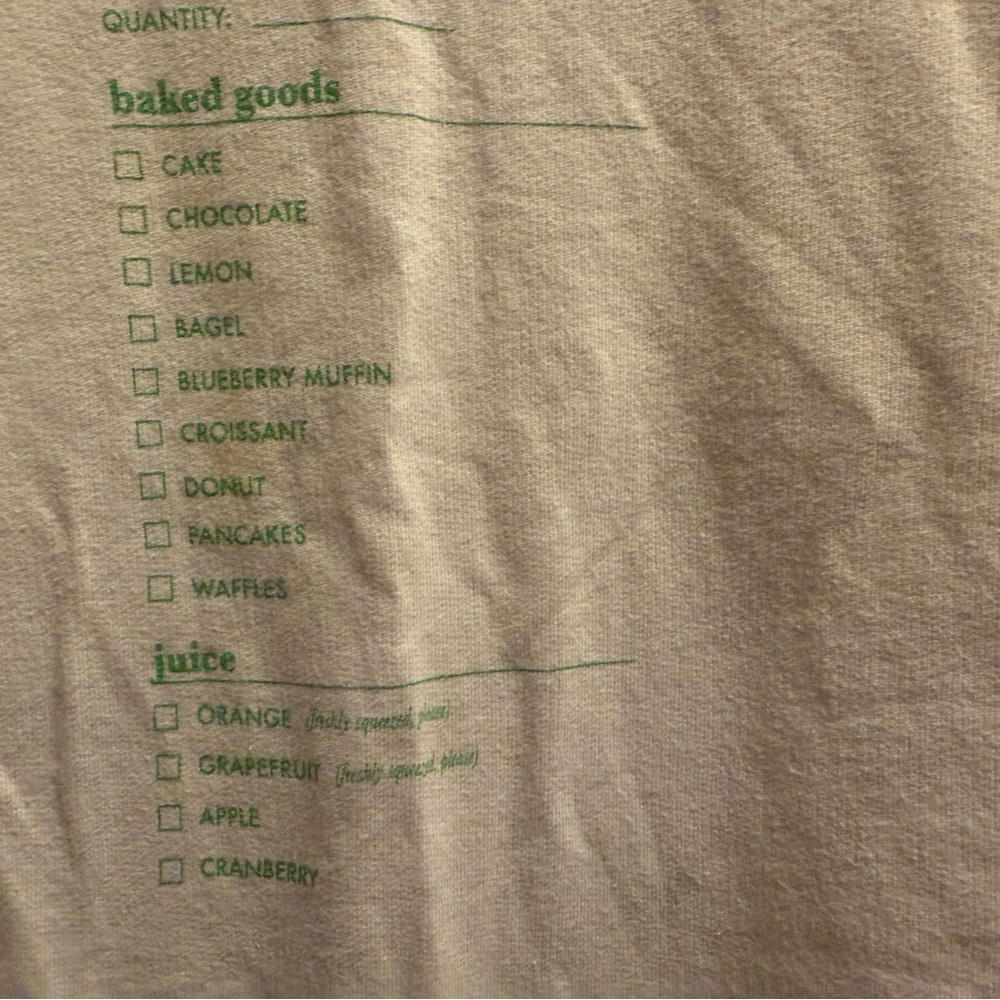 QUANTITY:
baked goods
CAKE
CHOCOLATE
LEMON
BAGEL
BLUEBERRY MUFFIN
CROISSANT
DONUT
PANCAKES
WAFFLES
juice
ORANGE (freshly squeezed, please)
GRAPEFRUIT (freshly squeezed, please)
APPLE
CRANBERRY